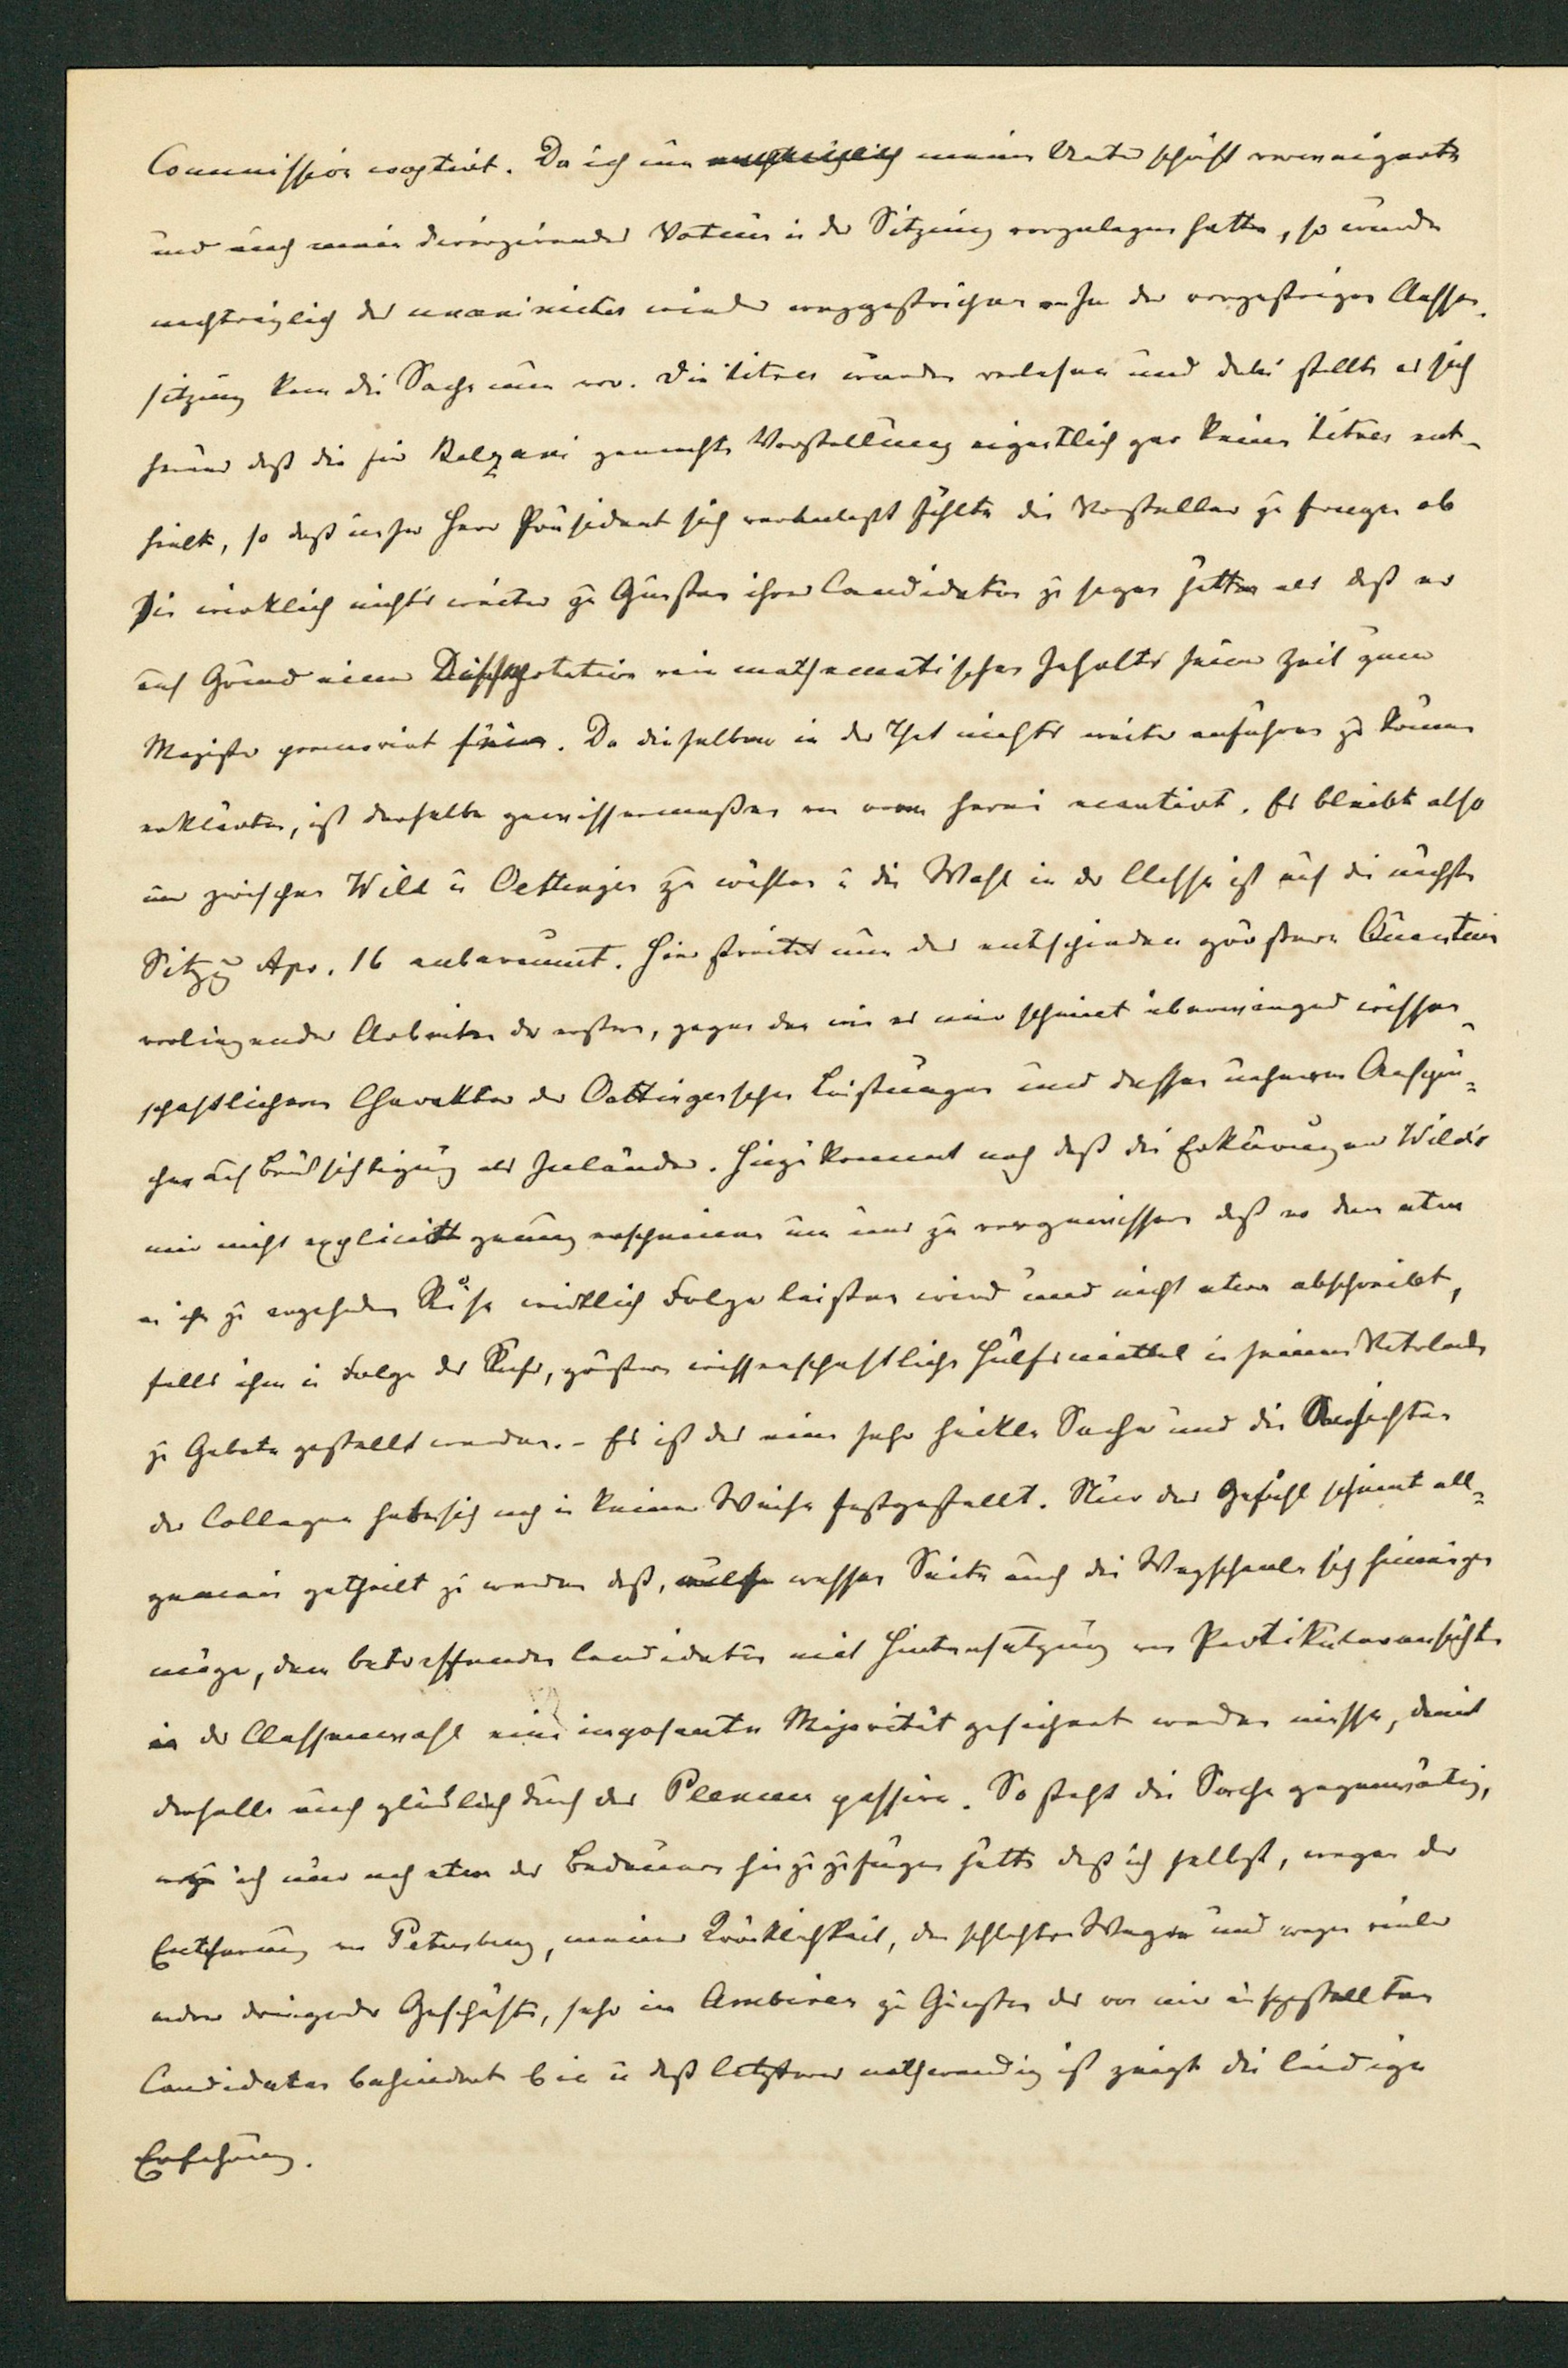 Commission cooptirt. Da ich nun meine Unterschrift verweigerte
und auch mein divergirendes Votum in der Sitzung vorzulegen hatte, so wurde
nachträglich der unanimiter wieder weggestrichen. In der vorgestrigen Classen-
sitzung kam die Sache nun vor. Die titres wurden verlesen und dabei stellte es sich
heraus daß die für Kelzani gemachte Vorstellung eigentlich gar keine titres ent-
hielt, so daß unser Herr Präsident sich veranlaßt fühlte die Vorsteller zu fragen ob
Sie wirklich nichts weiter zu Gunsten ihres Candidaten zu sagen hätten als daß er
auf Grund einer Dissertation rein mathematischen Inhalts seiner Zeit zum
Magister promovirt sei. Da dieselben in der That nichts weiter anführen zu können
erklärten, ist derselbe gewissermaßen von vorn herein ecartirt. Es bleibt also
nur zwischen Wild u Oettingen zu wählen u die Wahl in der Classe ist auf die nächste
Sitzg Apr. 16 anberaumt. Hier streitet nun das entschieden größere Quantum
vorliegender Arbeiten des ersten, gegen den wie es mir scheint überwiegend wissen-
schaftlicheren Charakter der Oettingenschen Leistungen und dessen näheren Ansprü-
chen auf Berücksichtigung als Inländer. Hinzu kommt noch daß die Erklärungen Wild's
mir nicht explicite genug erscheinen um uns zu vergewissern daß er dem etwa
an ihn zu ergehenden Rufe wirklich Folge leisten wird und nicht etwa abschreibt,
falls ihm in Folge des Rufs, größere wissenschaftliche Hülfsmittel in seinem Vaterlande
zu Gebote gestellt werden. – Es ist das eine sehr heikle Sache und die Ansichten
der Collegen haben sich noch in keiner Weise festgestellt. Nur das Gefühl scheint all-
gemein getheilt zu werden daß, wessen Seite auch die Wagschaale sich hinneigen
möge, dem betreffenden Candidaten mit Hintansetzung von Partikularansichten
in der Classenwahl eine imposante Majorität gesichert werden müsse, damit
derselbe auch glücklich durch das Plenum passire. So steht die Sache gegenwärtig,
wozu ich nur noch etwa das Bedauern hinzuzufügen hätte daß ich selbst, wegen der
Entfernung von Petersburg, meiner Kränklichkeit, der schlechten Wege und wegen vieler
andrer dringender Geschäfte, sehr im Ambiren zu Gunsten des von mir aufgestellten
Candidaten behindert bin u daß letzteres nothwendig ist zeigt die leidige
Erfahrung.